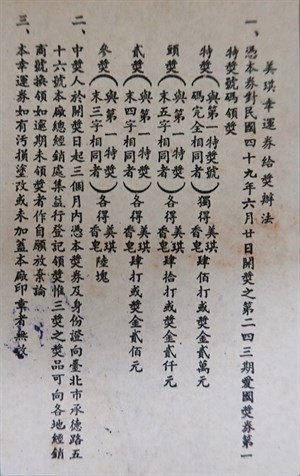 美琪幸運券給獎辦法
一、憑本券對民國四十九年六月廿日開獎之第二四三期愛國獎券第一
特獎號碼領獎
特獎（與第一特獎號碼完全相同者）獨得美琪香皂肆佰打或獎金貳萬元
頭獎（與第一特獎末五字相同者）各得美琪香皂肆拾打或獎金貳仟元
貳獎（與第一特獎末四字相同者）各得美琪香皂肆打或獎金貳佰元
參獎（與第一特獎末三字相同者）各得美琪香皂陸塊
二、中獎人於開獎日起三個月內憑本獎券及身份證向臺北市承德路五
十六號本廠總經銷處集益行登記領獎惟三獎之獎品可向各地經銷
商號換領如逾期未領獎者作自願放棄論
三、本幸運券如有污損塗改或未加蓋本廠印章者無效